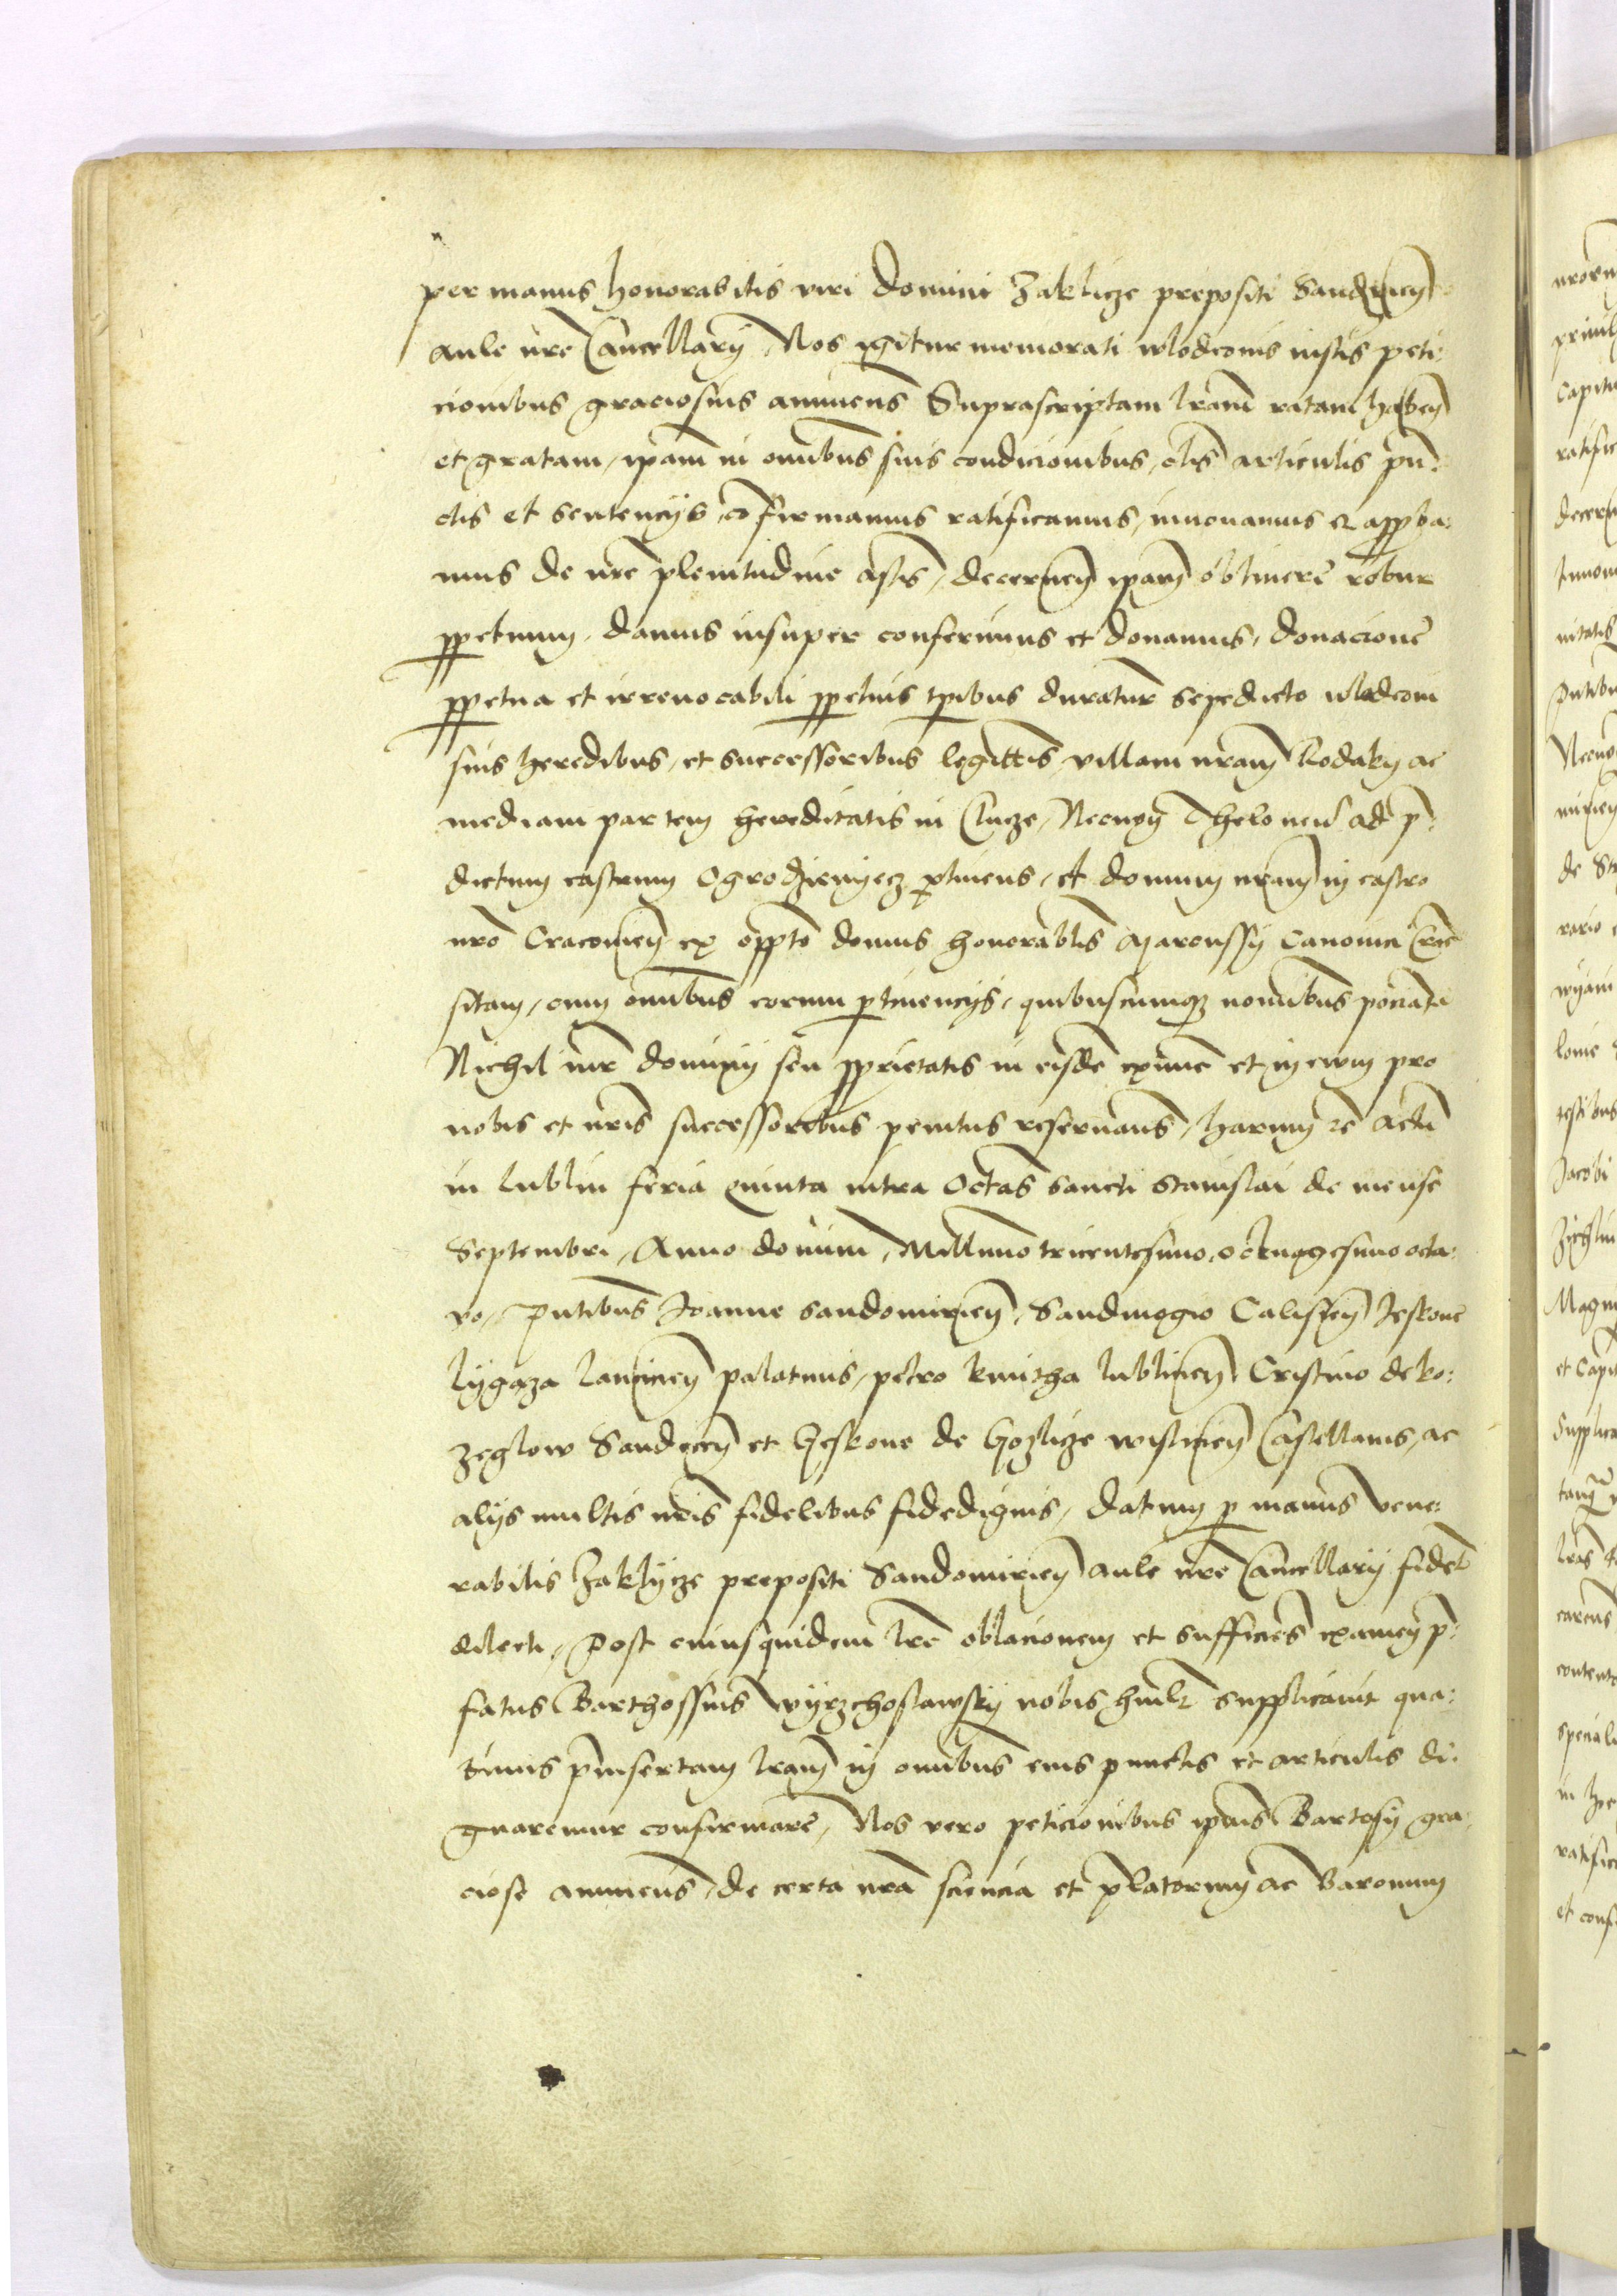 per manus honorabilis viri domini Zaklicze prepositi Sandomirieñ
aule nr̃e Cancellarij Nos igitur memorati wlodconis iustis peti:
cionibus graciosius annuen̄s Suprascriptam lr̃am ratam habeñ
et gratam, ip̃am in omĩbus suis condicionibus, cl̃is articulis pũ:
ctis et sentencijs, cõfirmamus ratificamus, innouamus et appꝛoba:
mus de nr̃e plenitudine ptãtis, decerneñ ip̃am obtinere robur
ꝑpetuum, damus insuper conferimus et donamus, donacione
ꝑpetua et irreuocabili ꝑpetuis tp̃ibus duratur̃ sepedicto wlodconi
suis heredibus, et successoribus legittĩs, villam nr̃am Rodaky ac
mediam partem hereditatis in Clucze, Necnoñ Theloneũ ad p̃:
dictum castrum Ogrodzyenyecz ꝑtinens, et domum nr̃am in castro
nr̃o Cracouieñ ex opp̃to domus honorabl̃is Jarossij Canonici Crac̃
sitam, cum omĩbus eorum ꝑtinencijs, quibuscumq nomĩbus
Nichil iur̃ dominij seu ꝓprietatis in eisdẽ et in ewm pro
nobis et nr̃is successoribus penitus reseruañs, harum etc̃ Actũ
in lublin feria quinta intra Octãs sancti Stanislai de mense
Septembri, Anno domini, Millimo tricentesimo, octuagesimo octa:
vo, Pñtibus Joanne Sandomirieñ, Sandiuogio Calisieñ Jeskone
lygaza lancicieñ palatinis, petro kmitha lublineñ Cristino de ko:
zeglow Sandeceñ et Jeskone de Gozlicze wislicieñ Castellanis, ac
alijs multis nr̃is fidelibus fidedignis, datum ꝑ manus vene:
rabilis Zaklycze prepositi Sandomirieñ aule nr̃e Cancellarij fidel̃
dilecti, Post cuiusquidem lr̃e oblacionem et sufficiẽs examen p̃:
fatus Barthossius wyrzchoslawsky nobis humilr̃ supplicauit qua:
tinus p̃insertam lr̃am in omĩbus eius punctis et articulis di:
gnaremur confirmare, Nos vero peticionibus ip̃ius Bartosij gra
ciose annuen̄s, de certa nr̃a sciencia et p̃latorum ac Baronum